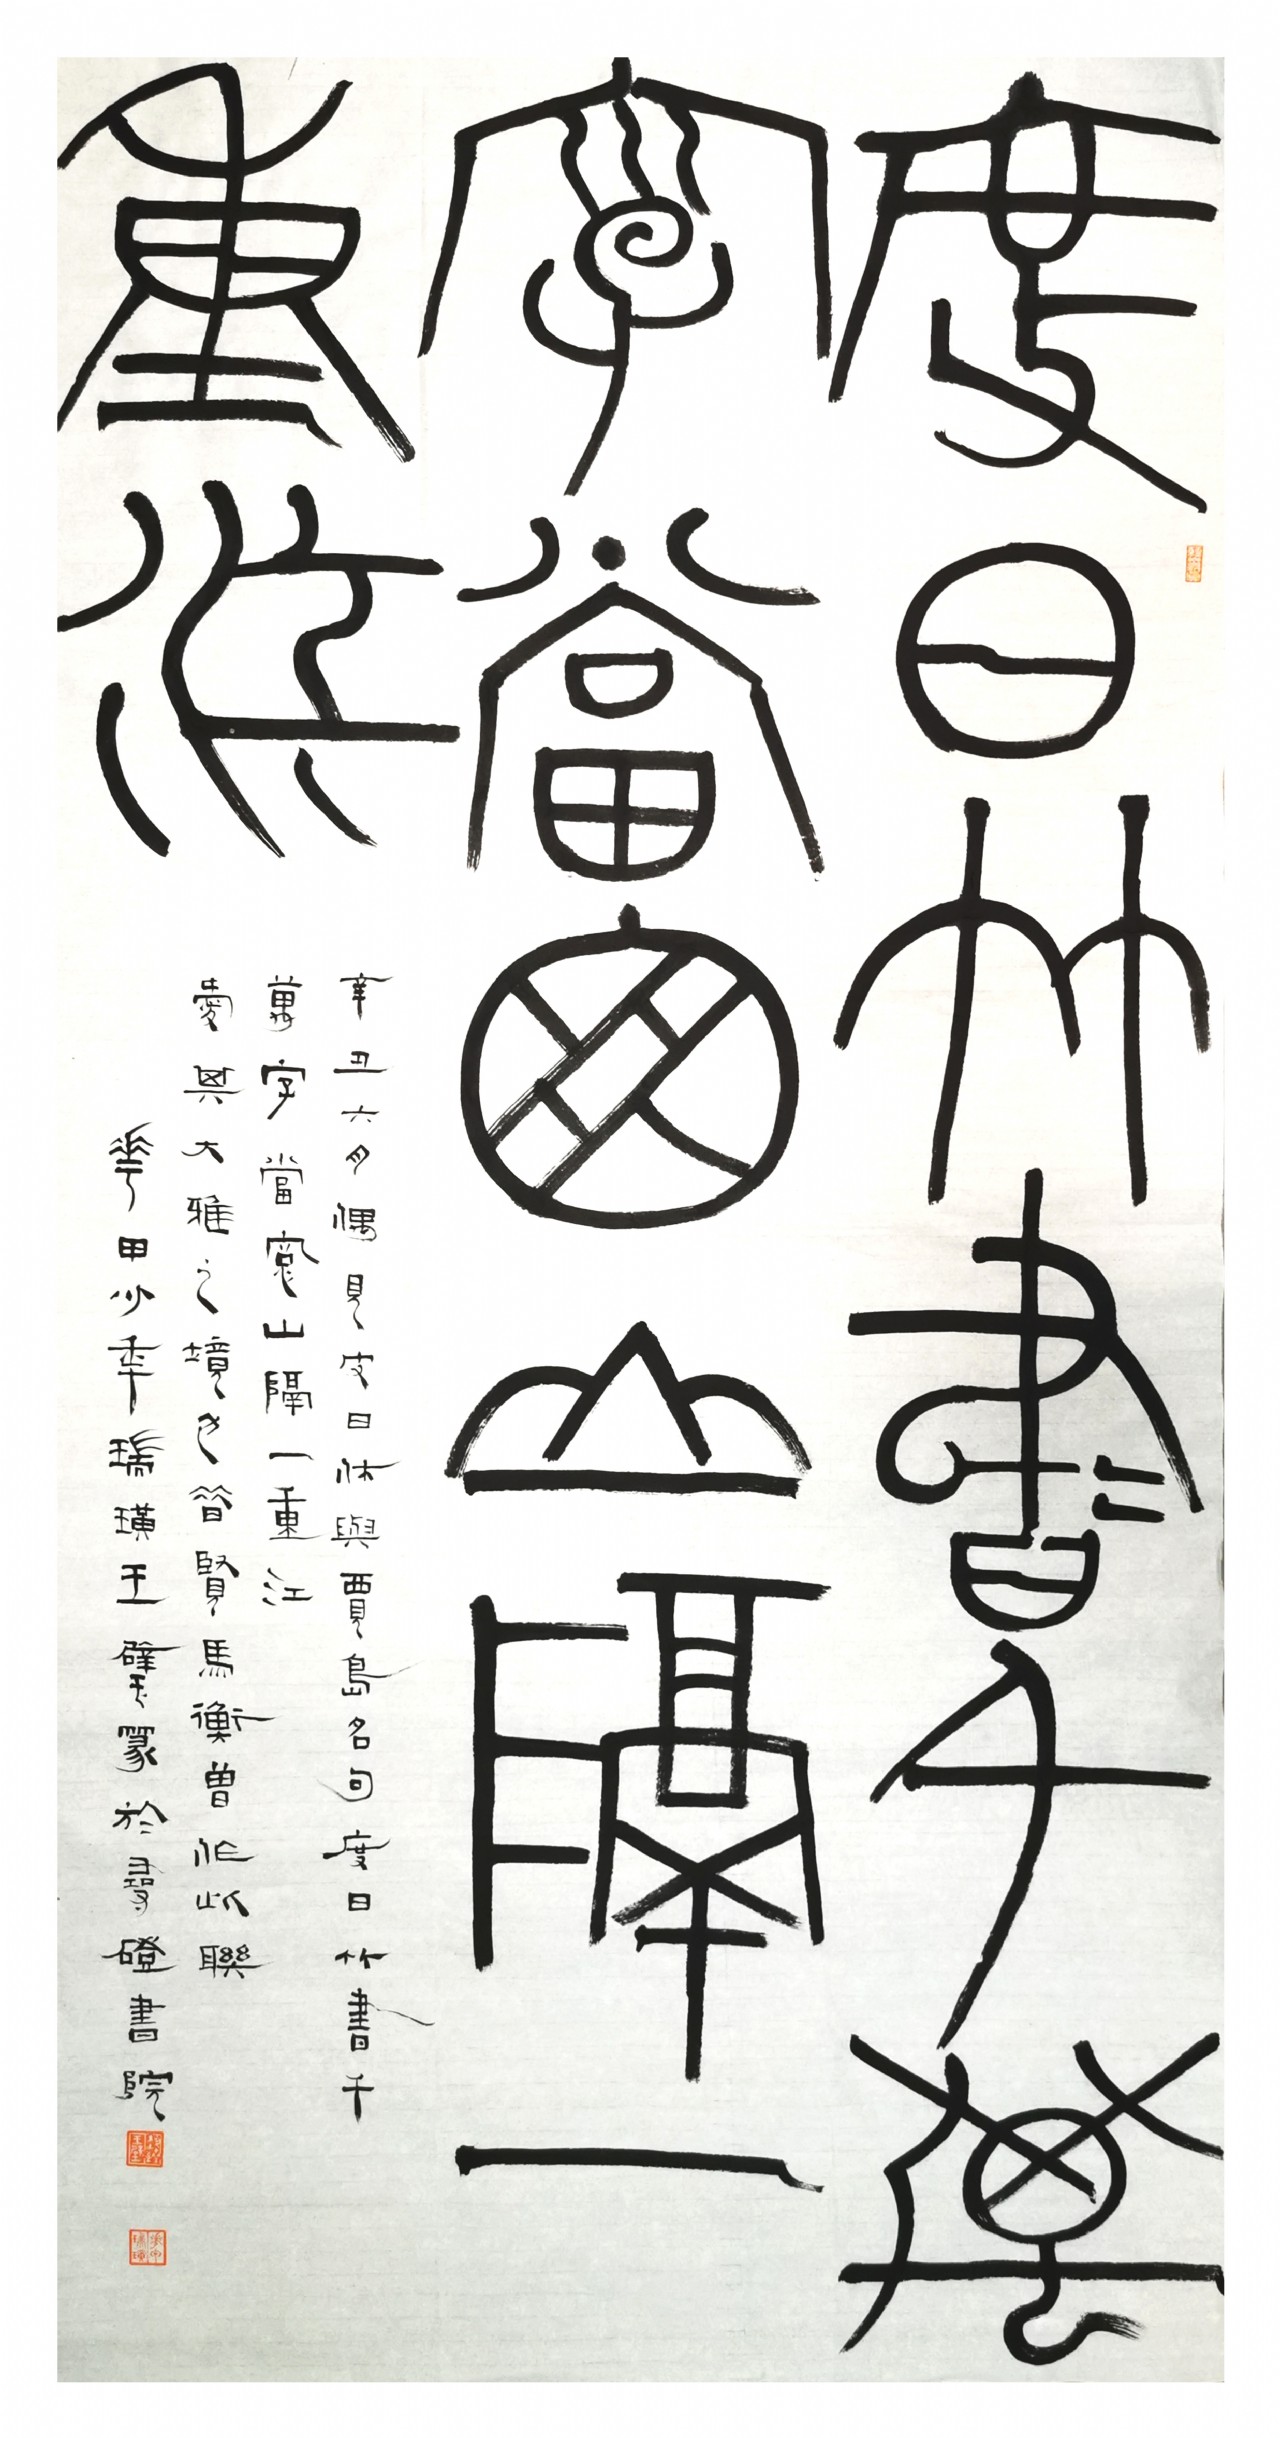 度日竹書千萬
字當窗山隔一
重江
辛丑六月偶見皮日休與賈島名句度日竹書千
萬字當窻山隔一重江
愛其大雅之境也昔賢馬衡曾作此聯
華甲少年瑞璜王璧篆於尋磴書院